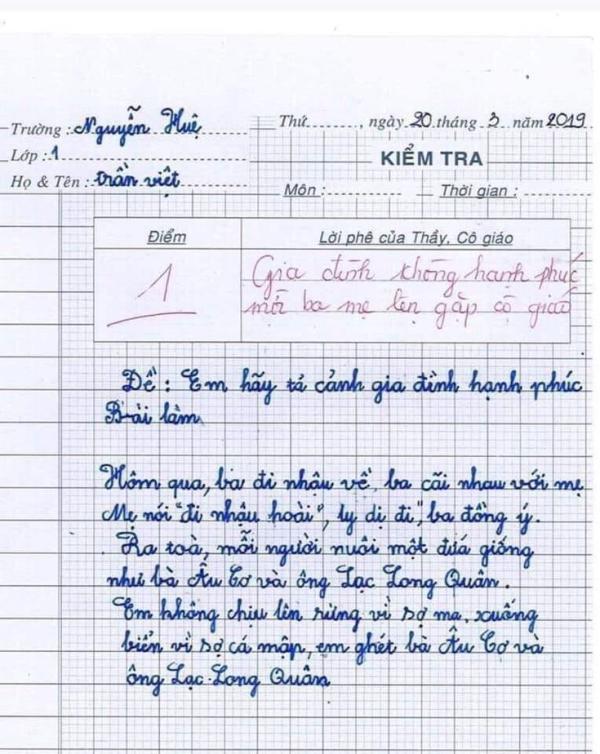 Trường : Nguyễn Huệ
Thứ........, ngày 20 tháng 3 năm 2019
Lớp : 1
KIỂM TRA
Họ & Tên : trần việt
Môn : Thời gian :
Điểm
Lời phê của Thầy, Cô giáo
1
Gia đình không hạnh phúc
mời ba mẹ lên gặp cô giáo
Đề : Em hãy tả cảnh gia đình hạnh phúc
Bài làm
Hôm qua, ba đi nhậu về ba cãi nhau với mẹ
Mẹ nói "đi nhậu hoài", ly dị đi", ba đồng ý.
Ra toà, mỗi người nuôi một đứa giống
như bà Âu Cơ và ông Lạc Long Quân.
Em không chịu lên rừng vì sợ ma, xuống
biển vì sợ cá mập, em ghét bà Âu Cơ và
ông Lạc Long Quân